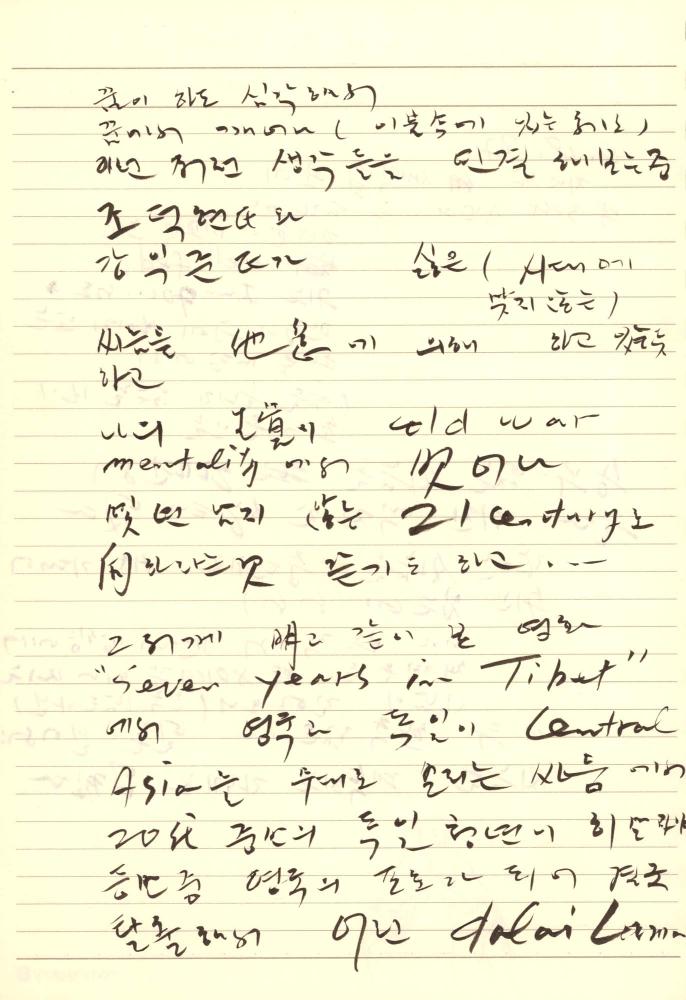 꿈이 하도 심각해서
꿈에서 깨어나 ( 이불속에 있는 채로 )
이런 저런 생각들을 연결 해보는중
조덕현氏와
강익준氏가 싫은 ( 시대에
맞지 않는 )
싸움을 他意에 의해 하고 있는듯
하고
나의 cold war
mentality 에서 벗어나
몇 년 남지 않는 21 century로
向하라는것 같기도 하고 . . . —
그저께 같이 본 영화
"Seven years in Tibet"
에서 영국과 독일이 Central
Asia를 무대로 벌리는 싸움에서
20代 중반의 독일 청년이 히말라야
등반중 영국의 포로가 되어 결국
탈출해서 어린 dalai Lama